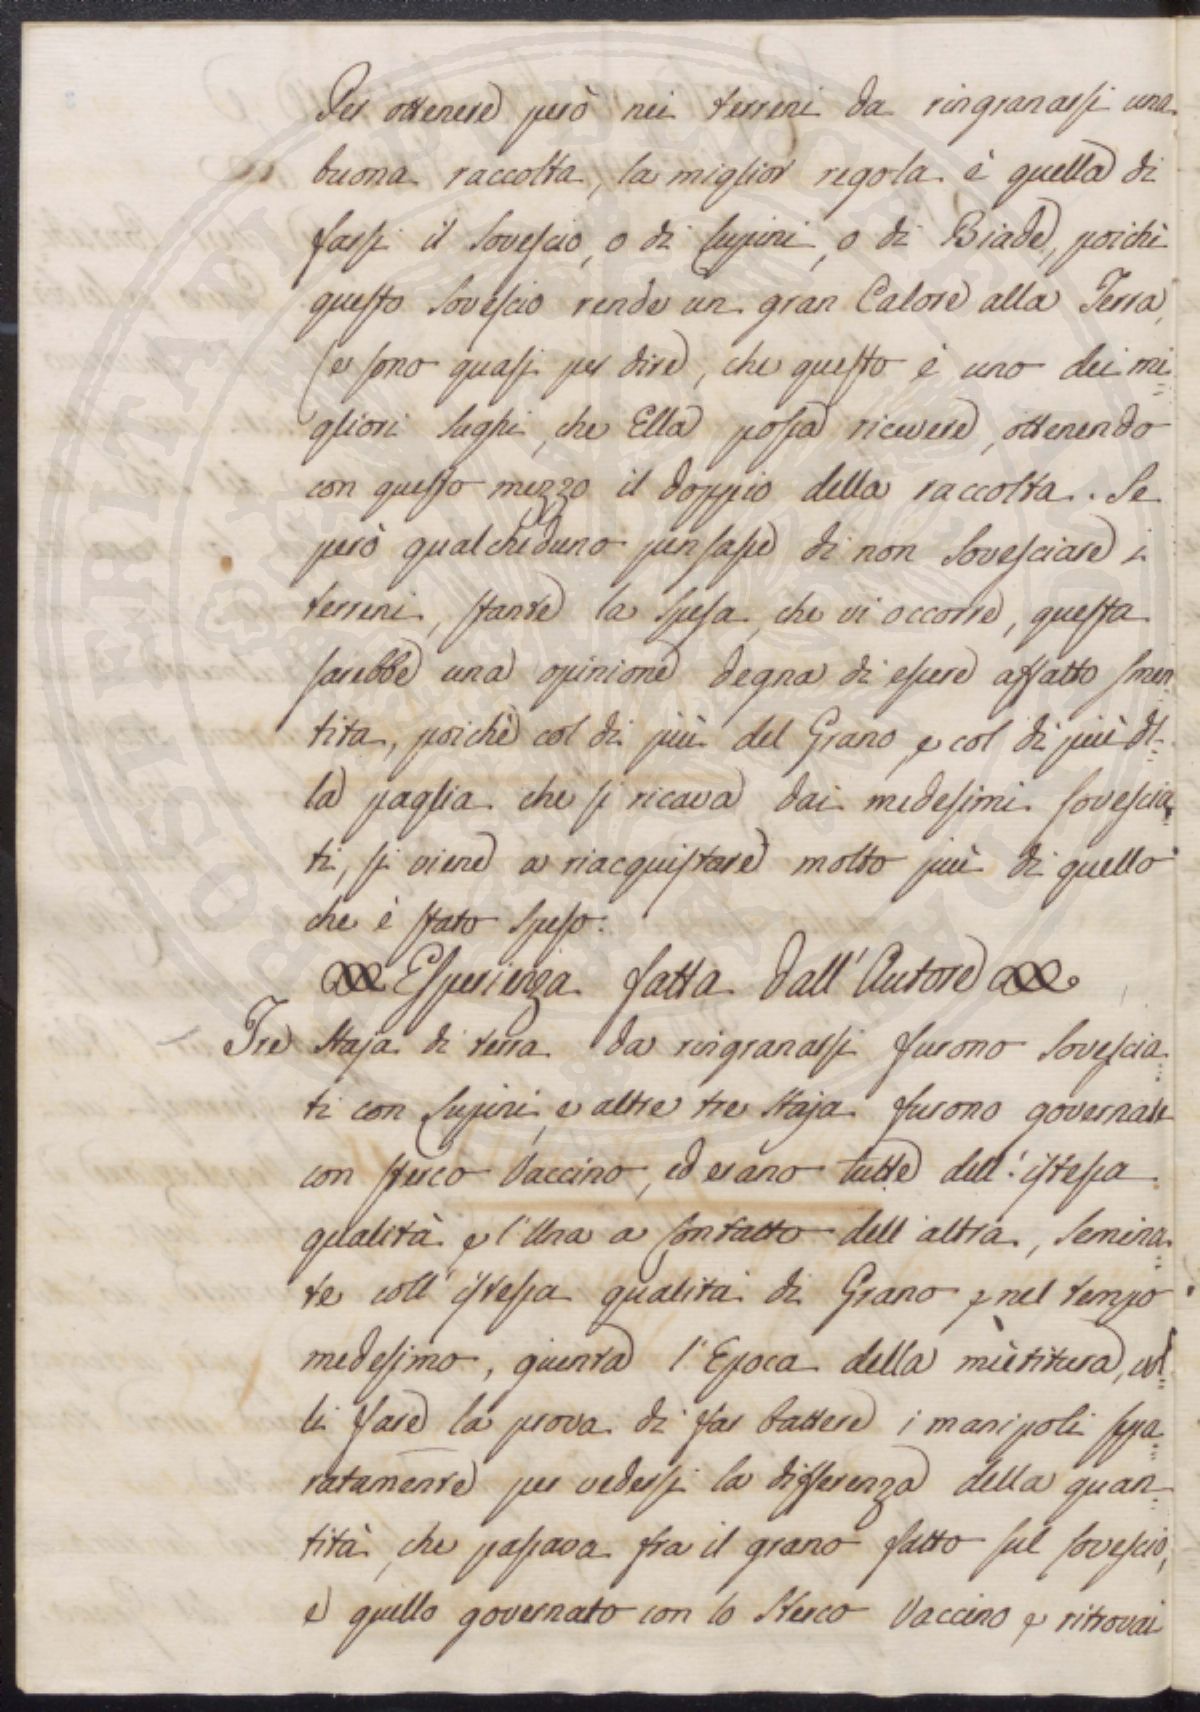 Per ottenere però nei terreni da ringranarsi una
buona raccolta, la miglior regola è quella di
farsi il Sovescio, o di Lupini, o di Biade, poichè
questo Sovescio rende un gran Calore alla Terra,
e sono quasi per dire, che questo è uno dei mi=
gliori Sughi, che Ella possa ricevere, ottenendo
con questo mezzo il doppio della raccolta. Se
però qualcheduno pensasse di non Sovesciare i
terreni, stante la Spesa, che vi occorre, questa
sarebbe una opinione degna di essere affatto smen
tita, poichè col di più del Grano, e col di più del=
la paglia che si ricava dai medesimi sovescia
ti, si viene a riacquistare molto più di quello
che è stato Speso.
Esperienza fatta dall'Autore
Tre Staja di terra da ringranarsi furono Sovescia=
ti con Lupini, e altre tre Staja furono governate
con sterco Vaccino, ed erano tutte dell'istessa
qualità e l'Una a Contatto dell'altra, Semina=
te coll'istessa qualità di Grano e nel tempo
medesimo, giunta l'Epoca della mietitura, vol=
li fare la prova di far battere i manipoli sepa=
ratamente per vedersi la differenza della quan=
tità, che passava fra il grano fatto sul sovescio,
e quello governato con lo Sterco Vaccino e ritrovai